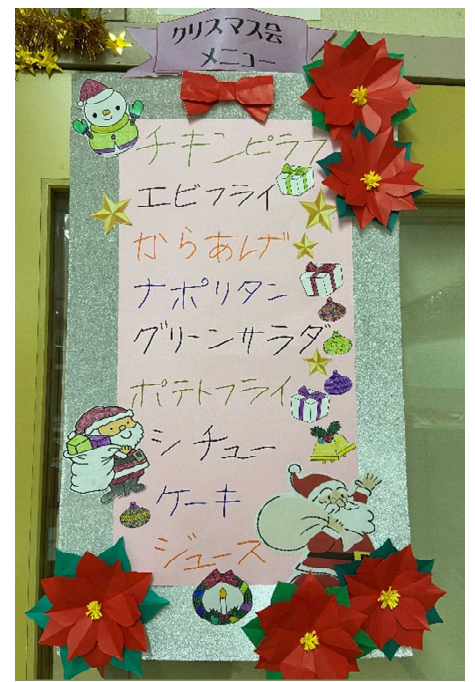 クリスマス会
メニュー
チキンピラフ
エビフライ
からあげ
ナポリタン
グリーンサラダ
ポテトフライ
シチュー
ケーキ
ジュース